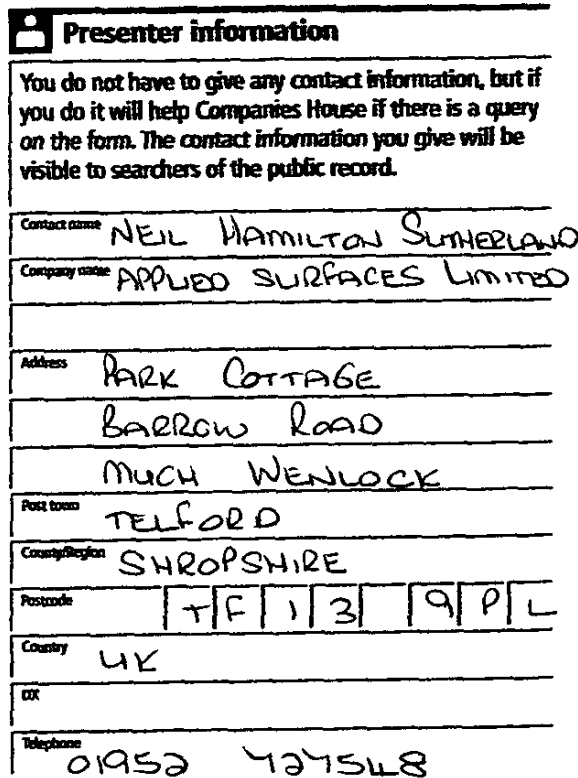 Presenter information
You do not have to give any contact information, but if
you do it will help Companies House if there is a query
on the form. The contact information you give will be
visible to searchers of the public record.
Contact name NEIL HAMILTON SUTHERLAND
Company name APPLIED SURFACES LIMITED
Address PARK COTTAGE
BARROW ROAD
MUCH WENLOCK
Post town TELFORD
County/Region SHROPSHIRE
Postcode TF13 9PL
Country UK
DX
Telephone 01952 727548